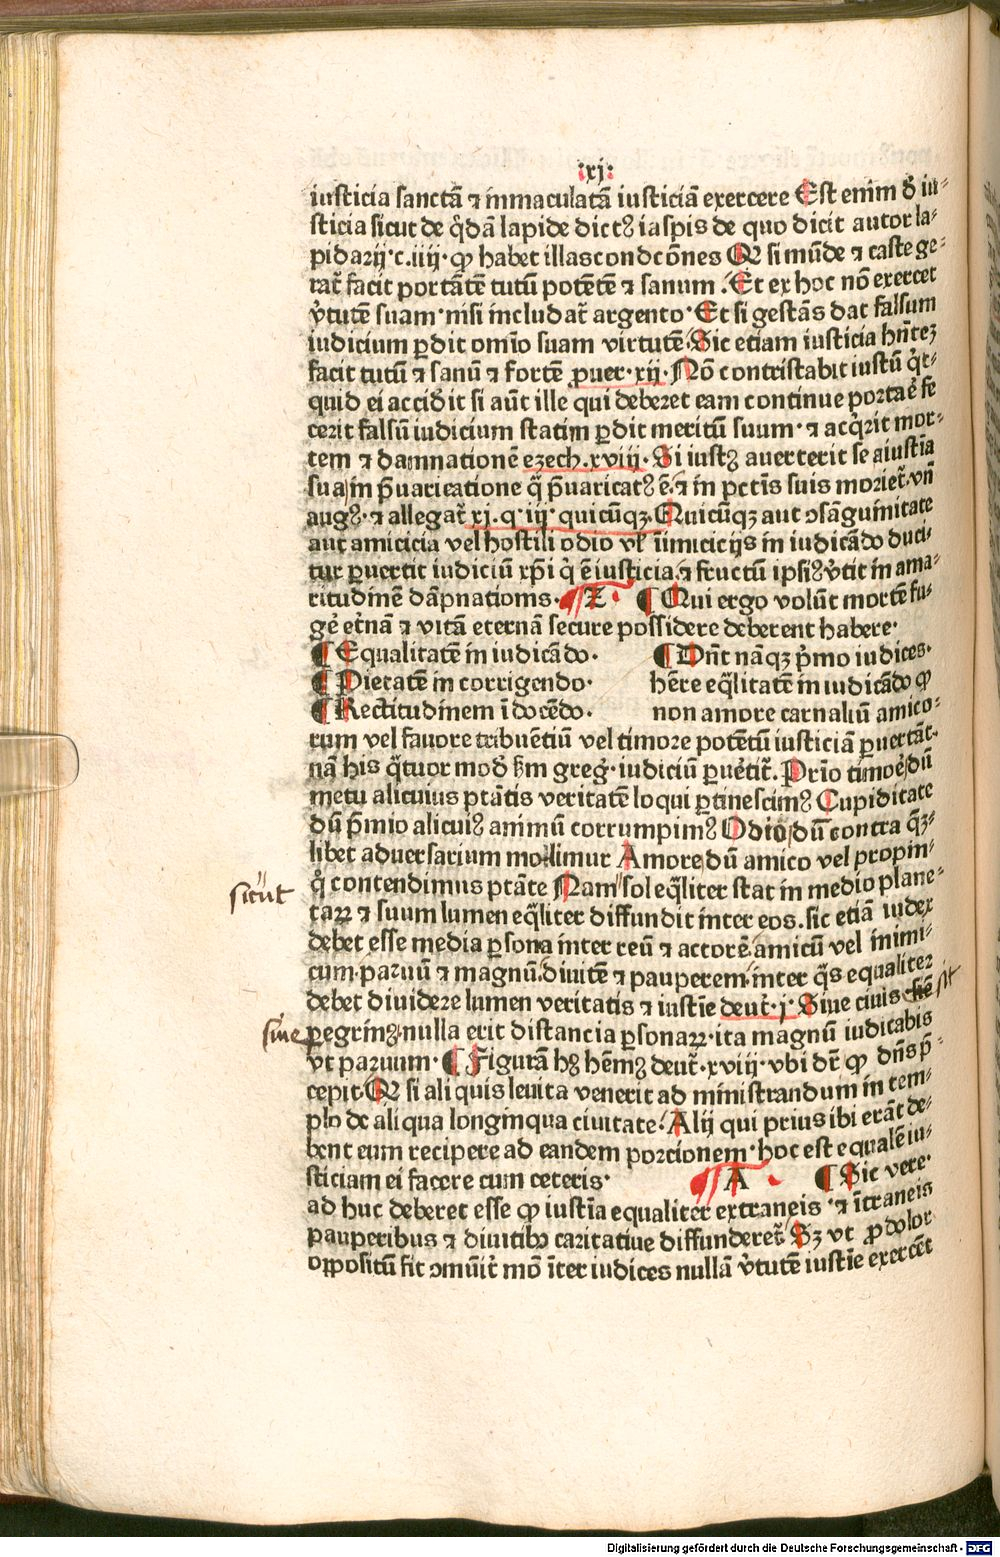 :xj:
iusticia sanctā ⁊ immaculatā iusticiā exercere Est enim ð iu⸗
sticia sicut de q̄dā lapide dictꝰ iaspis de quo dicit autor la⸗
pidarij·c.iiij· ꝙ habet illas condcōnes Qꝛ si mūde ⁊ caste ge⸗
rat̄ facit portātē tutū potētē ⁊ sanum ·Et ex hoc nō exercet
v̄tutē suam· nisi includat̄ argento· Et si gestās dat falsum
iudicium ꝑdit om̄io suam virtutē· Sic etiam iusticia hn̄teʒ
facit tutū ⁊ sanū ⁊ fortē ꝓuer·xij· Nō contristabit iustū q̇t⸗
quid ei acciďit si aūt ille qui deberet eam continue portaē fe
cerit falsū iudicium statim ꝑdit meritū suum· ⁊ acq̇rit mor⸗
tem ⁊ damnationē ezech.xviij· Si iustꝰ auerterit se a iustīa
sua in p̄uaricatione q̄ p̄uaricatꝰ ē· ⁊ in pctīs suis moriet̄· vn̄
augꝰ· ⁊ allegat̄ xj.q·iij· quicūqʒ· Quicūqʒ aut ɔsāguinitate
aut amicicia vel hostili odio vl̄ īimicicijs in iudicādo duci⸗
tur ꝑuertit iudiciū xp̄i q̇ ē iusticia· ⁊ fructū ipsiꝰ v̄tit in ama⸗
ritudinē dāpnationis· Z ¶ Qui ergo volūt mortē fu⸗
gē et̄nā ⁊ vitā eternā secure possidere deberent habere·
¶ Equalitatē in iudicādo· ¶ Dn̄t nāqʒ p̄mo iudices·
¶ Pietatem in corrigendo· hēre eq̄litatē in iudicādo ꝙ
¶ Rectitudinem ī docēdo· non amore carnaliū amico⸗
rum vel fauore tribuētiū vel timore potētū iusticiā ꝑuertāt·
nā his q̄tuor moď ẖm greg̓· iudiciū ꝑuētit̄. Prīo timoē dū
metu alicuius ptātis veritatē loqui ꝑtinescimꝰ Cupiditate
dū p̄mio alicuiꝰ animū corrumpimꝰ Odio dū contra q̄ʒ⸗
libet aduersarium molimur Amore dū amico vel propin⸗
q̇ contendimus ptāte Nam sol eq̄liter stat in medio plane⸗
sicut
taꝝ ⁊ suum lumen eq̄liter diffundit inter eos. sic etiā iudex
debet esse media ꝑsona inter reū ⁊ actorē amicū vel inimi⸗
cum· paruū ⁊ magnū· diuitē ⁊ pauperem· inter q̄s equaliter
debet diuidere lumen veritatis ⁊ iustīe deut̄· j· Siue ciuis sit
siue
pegrinꝰ· nulla erit distancia ꝑsonaꝝ· ita magnū iudicabis
vt paruum· ¶ Figurā hꝰ hēmꝰ deut̄·xviij· vbi dt̄ ꝙ dn̄s p̄⸗
cepit· Qꝛ si aliquis leuita venerit ad ministrandum in tem⸗
plo de aliqua longinqua ciuitate· Alij qui prius ibi erāt de⸗
bent eum recipere ad eandem porcionem· hoc est equalē iu⸗
sticiam ei facere cum ceteris· A ¶ Sic vere·
ad huc deberet esse ꝙ iustīa equaliter extraneis · ⁊ ītraneis
pauperibus ⁊ diuitibꝫ caritatiue diffunderet̄ Sʒ vt ꝓ dolor
oppositū fit ɔmūit̄ mō īter iudices nullā v̄tutē iustīe exercēt
Digitalisierung gefördert durch die Deutsche Forschungsgemeinschaft - DFG